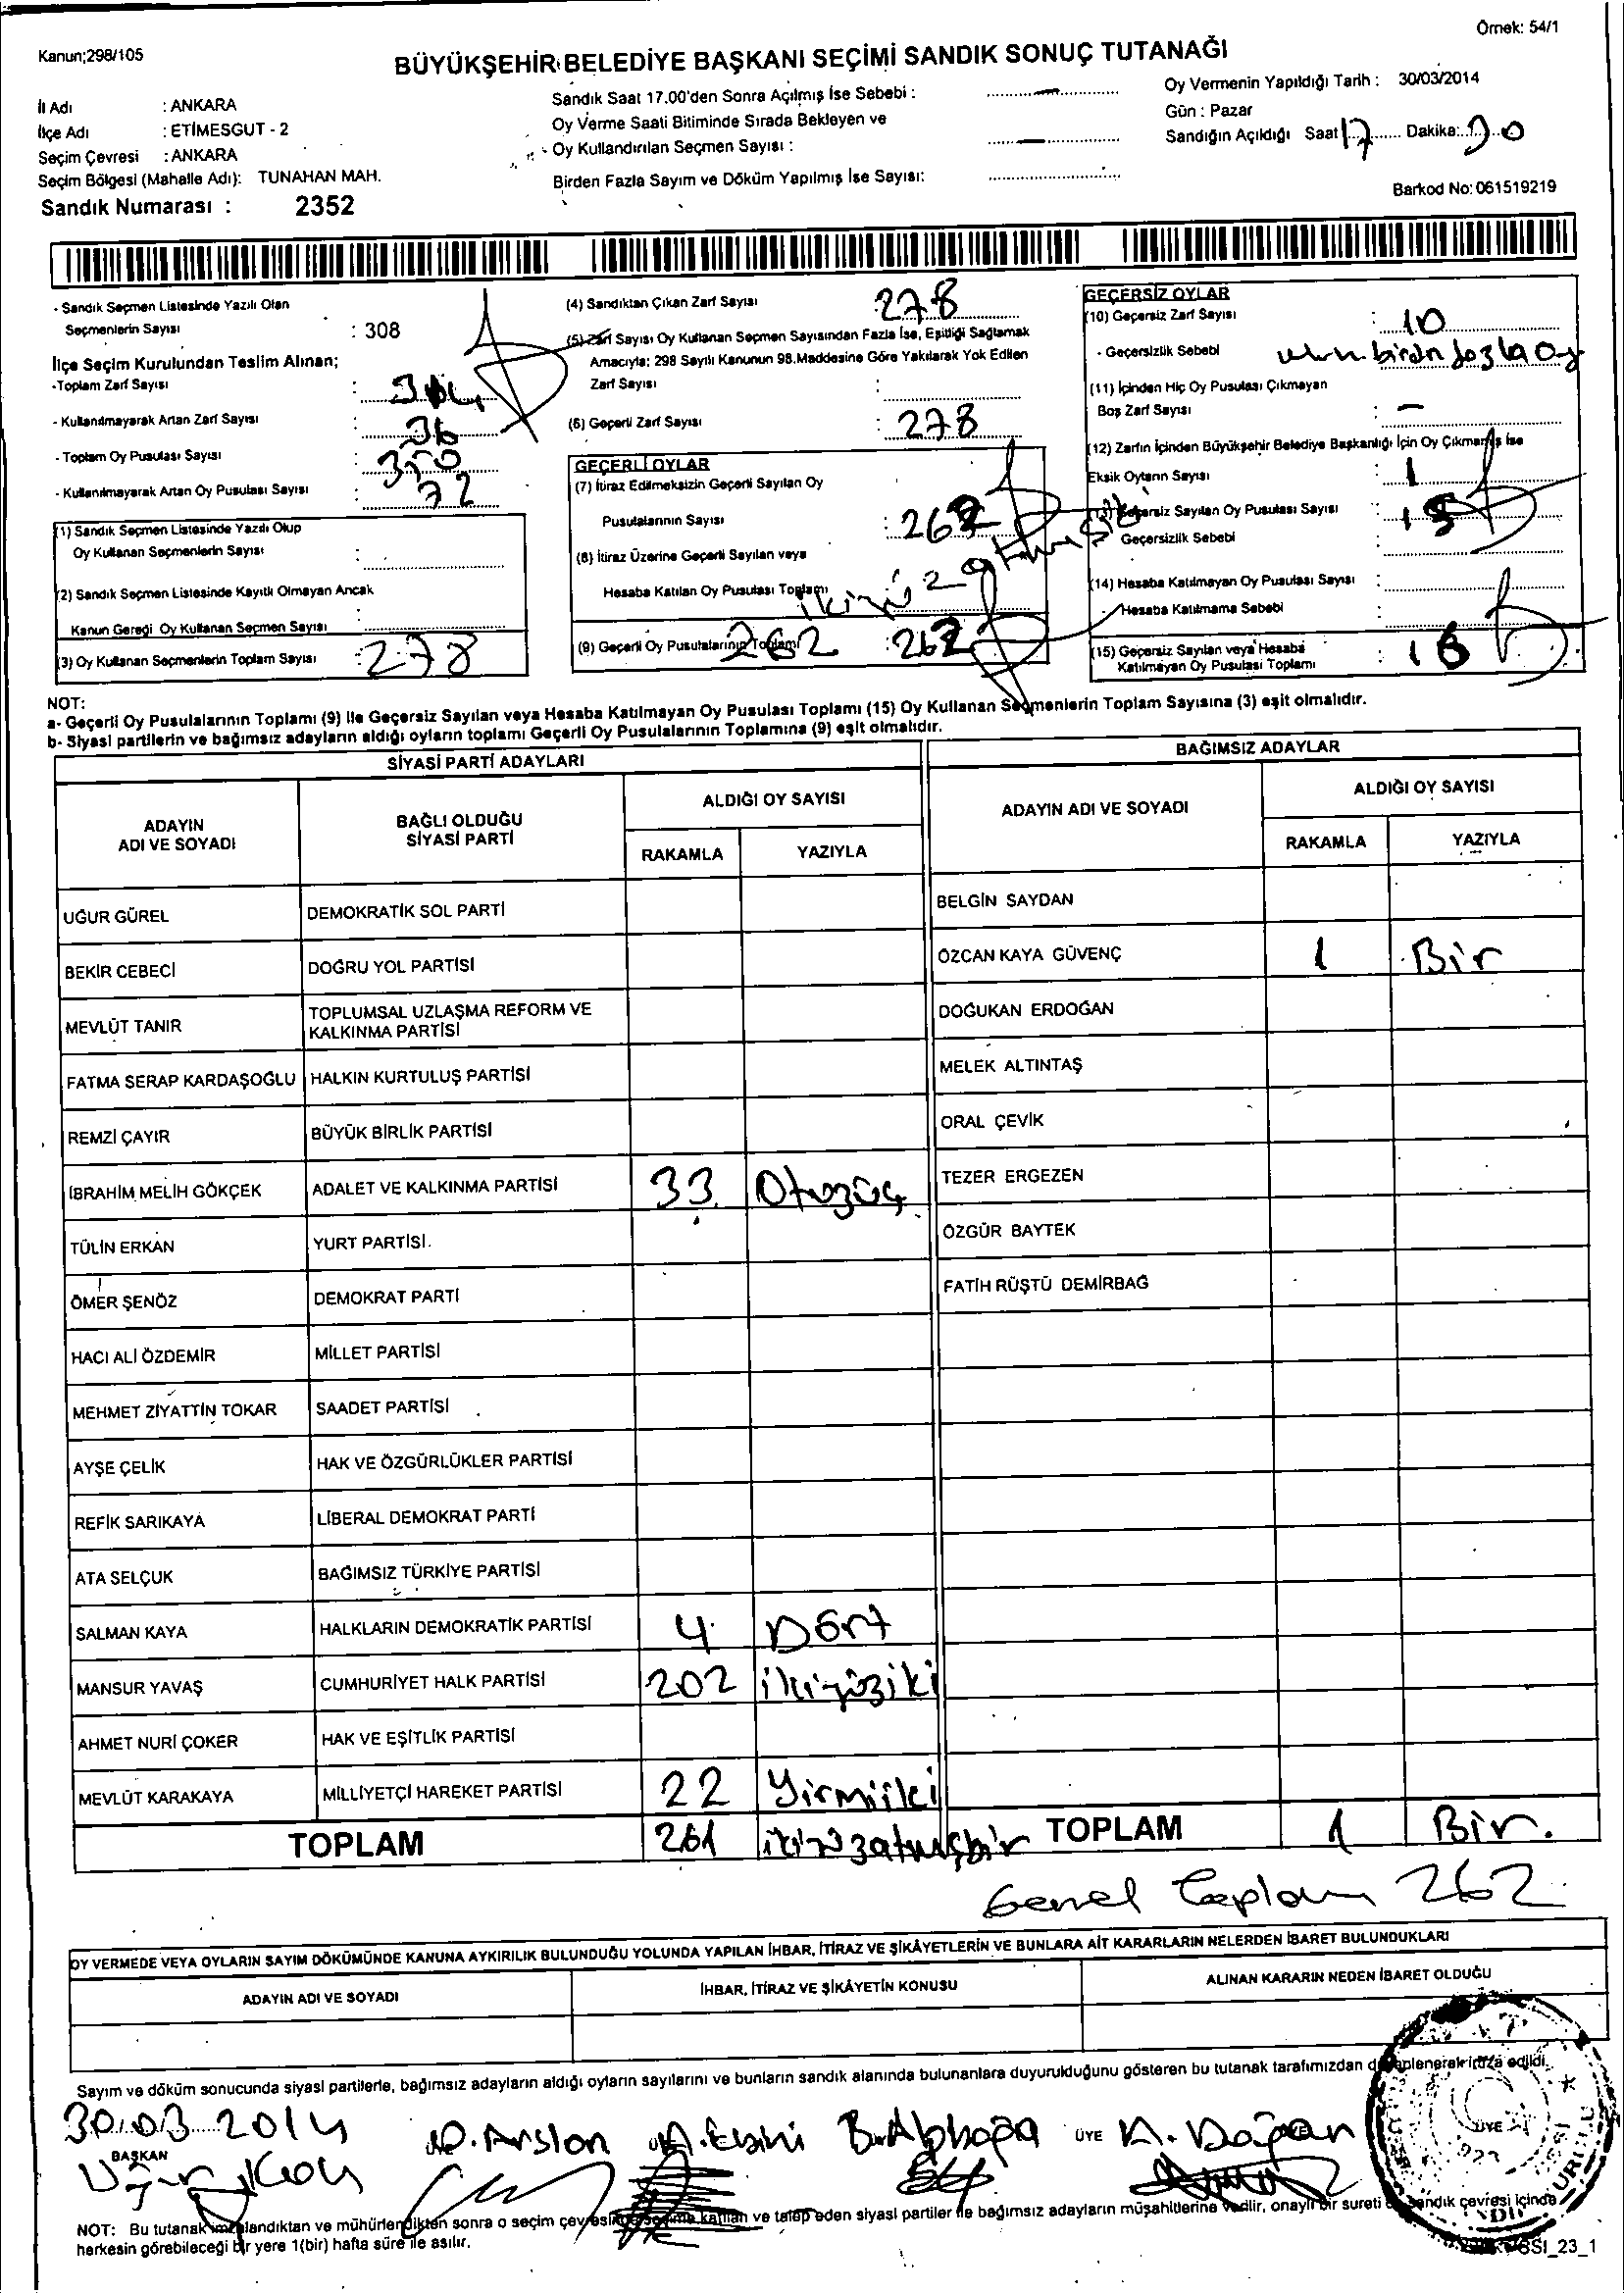 Örnek: 54/1
Kanun;298/105
BÜYÜKŞEHİR BELEDİYE BAŞKANI SEÇİMİ SANDIK SONUÇ TUTANAĞI
İl Adı : ANKARA
İlçe Adı : ETİMESGUT - 2
Seçim Çevresi : ANKARA
Seçim Bölgesi (Mahalle Adı): TUNAHAN MAH.
Sandık Numarası : 2352
Sandık Saat 17.00'den Sonra Açılmış İse Sebebi :
Oy Verme Saati Bitiminde Sırada Bekleyen ve
- Oy Kullandırılan Seçmen Sayısı :
Birden Fazla Sayım ve Döküm Yapılmış İse Sayısı:
Oy Vermenin Yapıldığı Tarih : 30/03/2014
Gün : Pazar
Sandığın Açıldığı Saat 17 Dakika:
Barkod No: 061519219
- Sandık Seçmen Listesinde Yazılı Olan
Seçmenlerin Sayısı : 308
İlçe Seçim Kurulundan Teslim Alınan;
-Toplam Zarf Sayısı : 314
- Kullanılmayarak Artan Zarf Sayısı : 36
- Toplam Oy Pusulası Sayısı : 350
- Kullanılmayarak Artan Oy Pusulası Sayısı : 72
(1) Sandık Seçmen Listesinde Yazılı Olup
Oy Kullanan Seçmenlerin Sayısı :
(2) Sandık Seçmen Listesinde Kayıtlı Olmayan Ancak
Kanun Gereği Oy Kullanan Seçmen Sayısı :
(3) Oy Kullanan Seçmenlerin Toplam Sayısı : 278
(4) Sandıktan Çıkan Zarf Sayısı 278
(5) Zarf Sayısı Oy Kullanan Seçmen Sayısından Fazla İse, Eşitliği Sağlamak
Amacıyla; 298 Sayılı Kanunun 98.Maddesine Göre Yakılarak Yok Edilen
Zarf Sayısı :
(6) Geçerli Zarf Sayısı : 278
GEÇERLİ OYLAR
(7) İtiraz Edilmeksizin Geçerli Sayılan Oy
Pusulalarının Sayısı : 262
(8) İtiraz Üzerine Geçerli Sayılan veya
Hesaba Katılan Oy Pusulası Toplamı
(9) Geçerli Oy Pusulalarının Toplamı 262 : 262
GEÇERSİZ OYLAR
(10) Geçersiz Zarf Sayısı : 10
- Geçersizlik Sebebi birden fazla oy
(11) İçinden Hiç Oy Pusulası Çıkmayan
Boş Zarf Sayısı : -
(12) Zarfın İçinden Büyükşehir Belediye Başkanlığı İçin Oy Çıkmamış İse
Eksik Oyların Sayısı : 1
(13) Geçersiz Sayılan Oy Pusulası Sayısı : 15
Geçersizlik Sebebi :
(14) Hesaba Katılmayan Oy Pusulası Sayısı :
- Hesaba Katılmama Sebebi :
(15) Geçersiz Sayılan veya Hesaba
Katılmayan Oy Pusulası Toplamı : 16
NOT:
a- Geçerli Oy Pusulalarının Toplamı (9) ile Geçersiz Sayılan veya Hesaba Katılmayan Oy Pusulası Toplamı (15) Oy Kullanan Seçmenlerin Toplam Sayısına (3) eşit olmalıdır.
b- Siyasi partilerin ve bağımsız adayların aldığı oyların toplamı Geçerli Oy Pusulalarının Toplamına (9) eşit olmalıdır.
SİYASİ PARTİ ADAYLARI
BAĞIMSIZ ADAYLAR
ADAYIN
ADI VE SOYADI
BAĞLI OLDUĞU
SİYASİ PARTİ
ALDIĞI OY SAYISI
RAKAMLA YAZIYLA
ADAYIN ADI VE SOYADI
ALDIĞI OY SAYISI
RAKAMLA YAZIYLA
UĞUR GÜREL DEMOKRATİK SOL PARTİ BELGİN SAYDAN
BEKİR CEBECİ DOĞRU YOL PARTİSİ ÖZCAN KAYA GÜVENÇ 1 Bir
MEVLÜT TANIR TOPLUMSAL UZLAŞMA REFORM VE
KALKINMA PARTİSİ DOĞUKAN ERDOĞAN
FATMA SERAP KARDAŞOĞLU HALKIN KURTULUŞ PARTİSİ MELEK ALTINTAŞ
REMZİ ÇAYIR BÜYÜK BİRLİK PARTİSİ ORAL ÇEVİK
İBRAHİM MELİH GÖKÇEK ADALET VE KALKINMA PARTİSİ 33 Otuzüç TEZER ERGEZEN
TÜLİN ERKAN YURT PARTİSİ ÖZGÜR BAYTEK
ÖMER ŞENÖZ DEMOKRAT PARTİ FATİH RÜŞTÜ DEMİRBAĞ
HACI ALİ ÖZDEMİR MİLLET PARTİSİ
MEHMET ZİYATTİN TOKAR SAADET PARTİSİ
AYŞE ÇELİK HAK VE ÖZGÜRLÜKLER PARTİSİ
REFİK SARIKAYA LİBERAL DEMOKRAT PARTİ
ATA SELÇUK BAĞIMSIZ TÜRKİYE PARTİSİ
SALMAN KAYA HALKLARIN DEMOKRATİK PARTİSİ 4 Dört
MANSUR YAVAŞ CUMHURİYET HALK PARTİSİ 202 ikiyüziki
AHMET NURİ ÇOKER HAK VE EŞİTLİK PARTİSİ
MEVLÜT KARAKAYA MİLLİYETÇİ HAREKET PARTİSİ 22 Yirmiiki
TOPLAM 261 ikiyüzatmışbir TOPLAM 1 Bir.
Genel Toplam 262
OY VERMEDE VEYA OYLARIN SAYIM DÖKÜMÜNDE KANUNA AYKIRILIK BULUNDUĞU YOLUNDA YAPILAN İHBAR, İTİRAZ VE ŞİKÂYETLERİN VE BUNLARA AİT KARARLARIN NELERDEN İBARET BULUNDUKLARI
ADAYIN ADI VE SOYADI İHBAR, İTİRAZ VE ŞİKÂYETİN KONUSU ALINAN KARARIN NEDEN İBARET OLDUĞU
Sayım ve döküm sonucunda siyasi partilerle, bağımsız adayların aldığı oyların sayılarını ve bunların sandık alanında bulunanlara duyurulduğunu gösteren bu tutanak tarafımızdan düzenlenerek imza edildi.
30.03.2014 Arslan ÜYE Doğan ÜYE
BAŞKAN
Uğur
NOT: Bu tutanak imzalandıktan ve mühürlendikten sonra o seçim çevresinde seçime katılan ve talep eden siyasi partiler ile bağımsız adayların müşahitlerine verilir, onaylı bir sureti de sandık çevresi içinde
herkesin görebileceği bir yere 1(bir) hafta süre ile asılır.
SSI_23_1